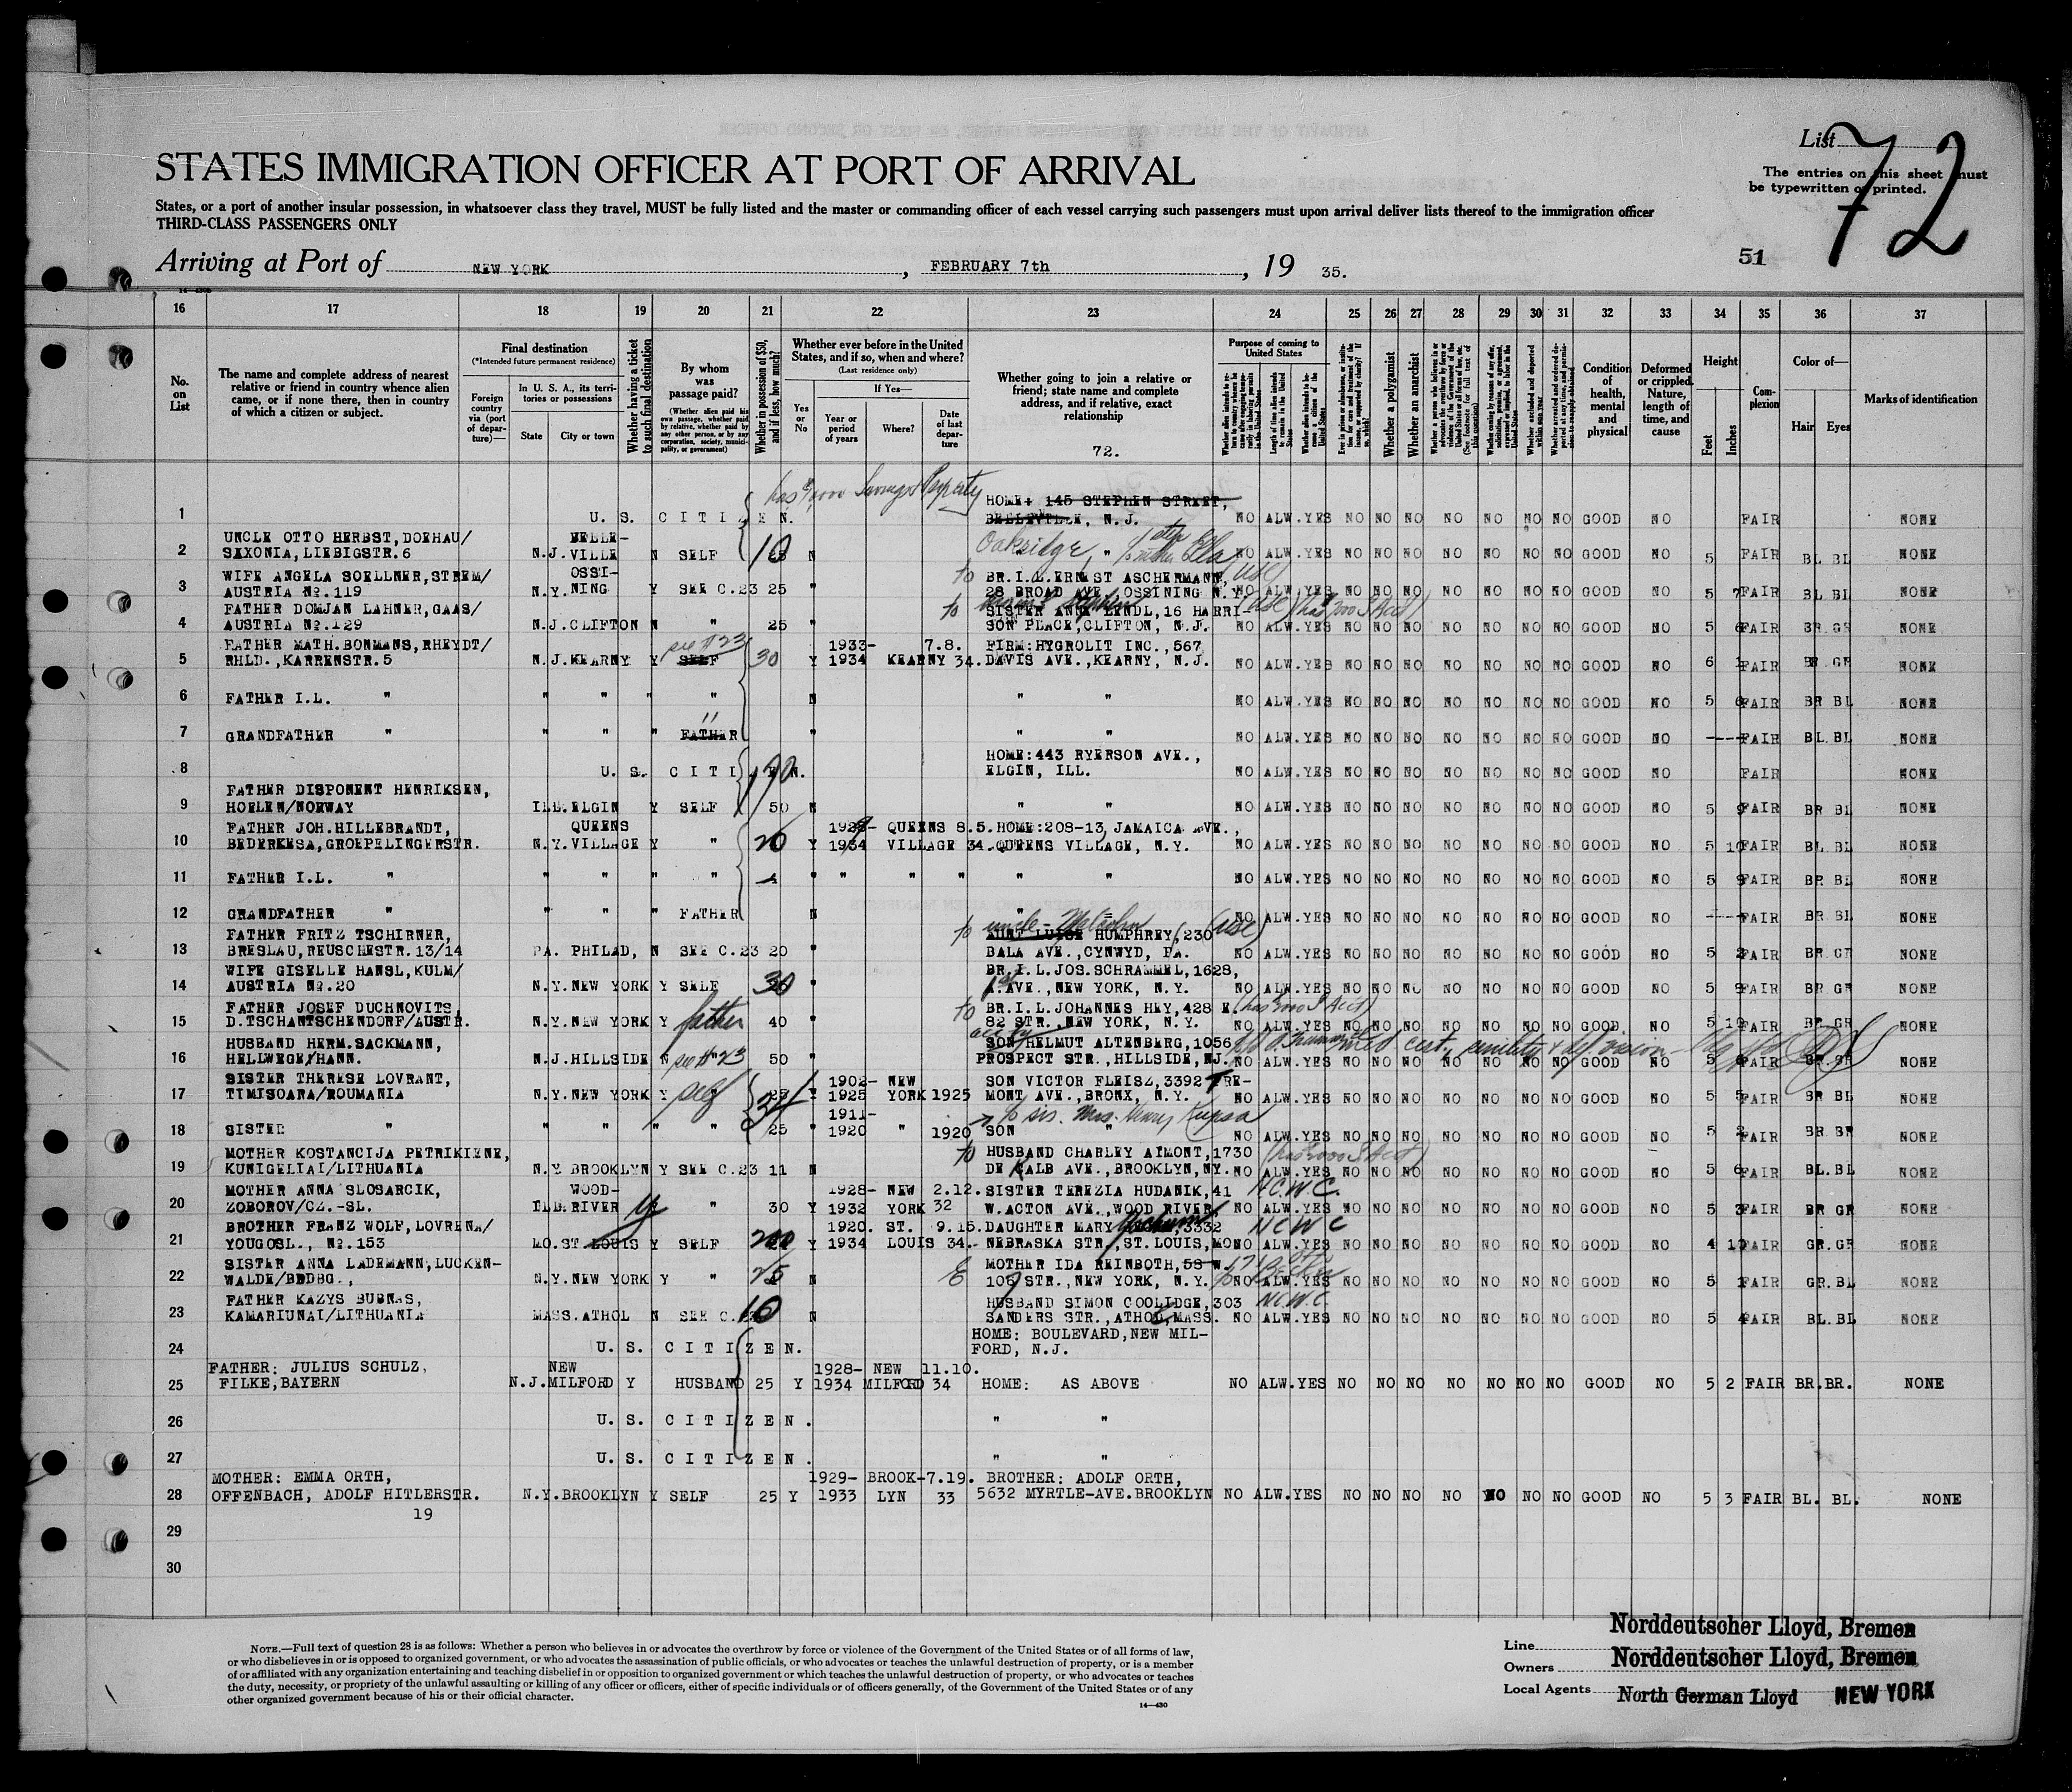 List 72
STATES IMMIGRATION OFFICER AT PORT OF ARRIVAL
The entries on this sheet must
be typewritten or printed.
States, or a port of another insular possession, in whatsoever class they travel, MUST be fully listed and the master or commanding officer of each vessel carrying such passengers must upon arrival deliver lists thereof to the immigration officer
THIRD-CLASS PASSENGERS ONLY
Arriving at Port of NEW YORK, FEBRUARY 7th, 19 35.
51
16 17 18 19 20 21 22 23 24 25 26 27 28 29 30 31 32 33 34 35 36 37
No. on List
The name and complete address of nearest relative or friend in country whence alien came, or if none there, then in country of which a citizen or subject.
Final destination
(*Intended future permanent residence)
Foreign country via (port of departure)—
In U. S. A., its territories or possessions
State City or town
Whether having a ticket to such final destination
By whom was passage paid?
(Whether alien paid his own passage, whether paid by relative, whether paid by any other person, or by any corporation, society, municipality, or government)
Whether in possession of $50, and if less, how much?
Whether ever before in the United States, and if so, when and where?
(Last residence only)
Yes or No
If Yes—
Year or period of years
Where?
Date of last departure
Whether going to join a relative or friend; state name and complete address, and if relative, exact relationship
72.
Purpose of coming to United States
Whether a polygamist
Whether an anarchist
Condition of health, mental and physical
Deformed or crippled. Nature, length of time, and cause
Height
Feet Inches
Complexion
Color of—
Hair Eyes
Marks of identification
1 U. S. CITIZEN. HOME+ 145 STEPHEN STREET,
BELLEVILLE, N.J. NO ALW. YES NO NO NO NO NO NO NO GOOD NO FAIR NONE
2 UNCLE OTTO HERBST, DOEHAU/
SAXONIA, LIEBIGSTR.6 N.J. BELLE-VILLE N SELF 10 N Oakridge, " NO ALW. YES NO NO NO NO NO NO NO GOOD NO 5 FAIR BL. BL NONE
3 WIFE ANGELA SOELLNER, STREM/
AUSTRIA No.119 N.Y. OSSI-NING Y SEE C.23 25 " to BR.I.L.ERNEST ASCHERMANN,
28 BROAD AVE. OSSINING N.Y. NO ALW. YES NO NO NO NO NO NO NO GOOD NO 5 7 FAIR BL. BL NONE
4 FATHER DOMJAN LAHNER, GAAS/
AUSTRIA No.129 N.J. CLIFTON N " 25 " to SISTER ANNA LENDL, 16 HARRI-
SON PLACE, CLIFTON, N.J. NO ALW. YES NO NO NO NO NO NO NO GOOD NO 5 6 FAIR BR. GR NONE
5 FATHER MATH.BONMANS, RHEYDT/
RHLD., KARRENSTR.5 N.J. KEARNY Y SELF see #23 30 Y 1933-1934 KEARNY 7.8.34. FIRM: HYGROLIT INC., 567
DAVIS AVE., KEARNY, N.J. NO ALW. YES NO NO NO NO NO NO NO GOOD NO 6 1 FAIR BR. GR NONE
6 FATHER I.L. " " " " " N " " NO ALW. YES NO NO NO NO NO NO NO GOOD NO 5 6 FAIR BR BL NONE
7 GRANDFATHER " " " " FATHER " " " " NO ALW. YES NO NO NO NO NO NO NO GOOD NO ---- FAIR BL. BL NONE
8 U. S. CITIZEN. HOME: 443 RYERSON AVE.,
ELGIN, ILL. NO ALW. YES NO NO NO NO NO NO NO GOOD NO FAIR NONE
9 FATHER DISPONENT HENRIKSEN,
HOELEN/NORWAY ILL. ELGIN Y SELF 50 N " " NO ALW. YES NO NO NO NO NO NO NO GOOD NO 5 9 FAIR BR BL NONE
10 FATHER JOH.HILLEBRANDT,
BEDERKESA, GROEPELINGERSTR. N.Y. QUEENS VILLAGE Y " 20 Y 1929-1934 QUEENS VILLAGE 8.5.34. HOME: 208-13, JAMAICA AVE.,
QUEENS VILLAGE, N.Y. NO ALW. YES NO NO NO NO NO NO NO GOOD NO 5 10 FAIR BL. BL NONE
11 FATHER I.L. " " " " " " " " " " " NO ALW. YES NO NO NO NO NO NO NO GOOD NO 5 9 FAIR BR. BL NONE
12 GRANDFATHER " " " " FATHER N " " NO ALW. YES NO NO NO NO NO NO NO GOOD NO ---- FAIR BR. BL NONE
13 FATHER FRITZ TSCHIRNER,
BRESLAU, REUSCHESTR.13/14 PA. PHILAD, N SEE C.23 20 " to uncle - Malcolm AUNT LUISE HUMPHREY, 230 (USC)
BALA AVE., CYNWYD, PA. NO ALW. YES NO NO NO NO NO NO NO GOOD NO 5 2 FAIR BR. GR NONE
14 WIFE GISELLE HANSL, KULM/
AUSTRIA No.20 N.Y. NEW YORK Y SELF 30 " BR.I.L.JOS.SCHRAMMEL, 1628,
1st A.AVE., NEW YORK, N.Y. NO ALW. YES NO NO NO NO NO NO NO GOOD NO 5 9 FAIR BR. GR NONE
15 FATHER JOSEF DUCHNOVITS,
D.TSCHANTSCHENDORF/AUSTR. N.Y. NEW YORK Y father 40 " to BR.I.L.JOHANNES HEY, 428 E.
82 STR. NEW YORK, N.Y. NO ALW. YES NO NO NO NO NO NO NO GOOD NO 5 10 FAIR BR. GR NONE
16 HUSBAND HERM.SACKMANN,
HELLWEGE/HANN. N.J. HILLSIDE N see #23 50 " SON HELMUT ALTENBERG, 1056
PROSPECT STR., HILLSIDE, NJ. NO ALW. YES NO NO NO NO NO NO NO GOOD NO 5 6 FAIR GR. GR NONE
cert. senility & def. vision
17 SISTER THERESE LOVRANT,
TIMISOARA/ROUMANIA N.Y. NEW YORK Y self 25 Y 1902-1925 NEW YORK 1925 SON VICTOR FLEISZ, 3392 TRE-
MONT AVE., BRONX, N.Y. NO ALW. YES NO NO NO NO NO NO NO GOOD NO 5 5 FAIR BR BL NONE
18 SISTER " " " " " 25 " 1911-1920 " 1920 SON " to sis. Mrs. Henry
NO ALW. YES NO NO NO NO NO NO NO GOOD NO 5 2 FAIR BR. BR NONE
19 MOTHER KOSTANCIJA PETRIKIENE,
KUNIGELIAI/LITHUANIA N.Y. BROOKLYN Y SEE C.23 11 N to HUSBAND CHARLEY AIMONT, 1730
DE KALB AVE., BROOKLYN, NY. NO ALW. YES NO NO NO NO NO NO NO GOOD NO 5 6 FAIR BL. BL NONE
20 MOTHER ANNA SLOSARCIK,
ZOBOROV/CZ.-SL. ILL. WOOD-RIVER " 30 Y 1928-1932 NEW YORK 2.12.32 SISTER TEREZIA HUDANIK, 41 N.C.W.C.
W.ACTON AVE., WOOD RIVER NO ALW. YES NO NO NO NO NO NO NO GOOD NO 5 3 FAIR BR GR NONE
21 BROTHER FRANZ WOLF, LOVRENA/
YOUGOSL., No.153 MO. ST. LOUIS Y SELF 200 Y 1920.1934 ST. LOUIS 9.15.34. DAUGHTER MARY 3332 N C W C
NEBRASKA STR., ST.LOUIS, MO NO ALW. YES NO NO NO NO NO NO NO GOOD NO 4 10 FAIR GR. GR NONE
22 SISTER ANNA LADEMANN, LUCKEN-
WALDE/BRDBG., N.Y. NEW YORK Y " 25 N MOTHER IDA REINBOTH, 53 W.
106 STR., NEW YORK, N.Y. NO ALW. YES NO NO NO NO NO NO NO GOOD NO 5 1 FAIR GR. BL NONE
23 FATHER KAZYS BUBNAS,
KAMARIUNAI/LITHUANIA MASS. ATHOL N SEE C.23 10 N HUSBAND SIMON COOLIDGE, 303 N.C.W.C.
SANDERS STR., ATHOL, MASS. NO ALW. YES NO NO NO NO NO NO NO GOOD NO 5 4 FAIR BL. BL NONE
24 U. S. CITIZEN. HOME: BOULEVARD, NEW MIL-
FORD, N.J.
25 FATHER: JULIUS SCHULZ,
FILKE, BAYERN N.J. NEW MILFORD Y HUSBAND 25 Y 1928-1934 NEW MILFORD 11.10.34 HOME: AS ABOVE NO ALW. YES NO NO NO NO NO NO NO GOOD NO 5 2 FAIR BR. BR. NONE
26 U. S. CITIZEN. " "
27 U. S. CITIZEN. " "
28 MOTHER: EMMA ORTH,
OFFENBACH, ADOLF HITLERSTR. 19 N.Y. BROOKLYN Y SELF 25 Y 1929-1933 BROOK-LYN 7.19.33 BROTHER: ADOLF ORTH,
5632 MYRTLE-AVE. BROOKLYN NO ALW. YES NO NO NO NO NO NO NO GOOD NO 5 3 FAIR BL. BL. NONE
29
30
NOTE.—Full text of question 28 is as follows: Whether a person who believes in or advocates the overthrow by force or violence of the Government of the United States or of all forms of law,
or who disbelieves in or is opposed to organized government, or who advocates the assassination of public officials, or who advocates or teaches the unlawful destruction of property, or is a member
of or affiliated with any organization entertaining and teaching disbelief in or opposition to organized government or which teaches the unlawful destruction of property, or who advocates or teaches
the duty, necessity, or propriety of the unlawful assaulting or killing of any officer or officers, either of specific individuals or of officers generally, of the Government of the United States or of any
other organized government because of his or their official character.
14—430
Line Norddeutscher Lloyd, Bremen
Owners Norddeutscher Lloyd, Bremen
Local Agents North German Lloyd NEW YORK